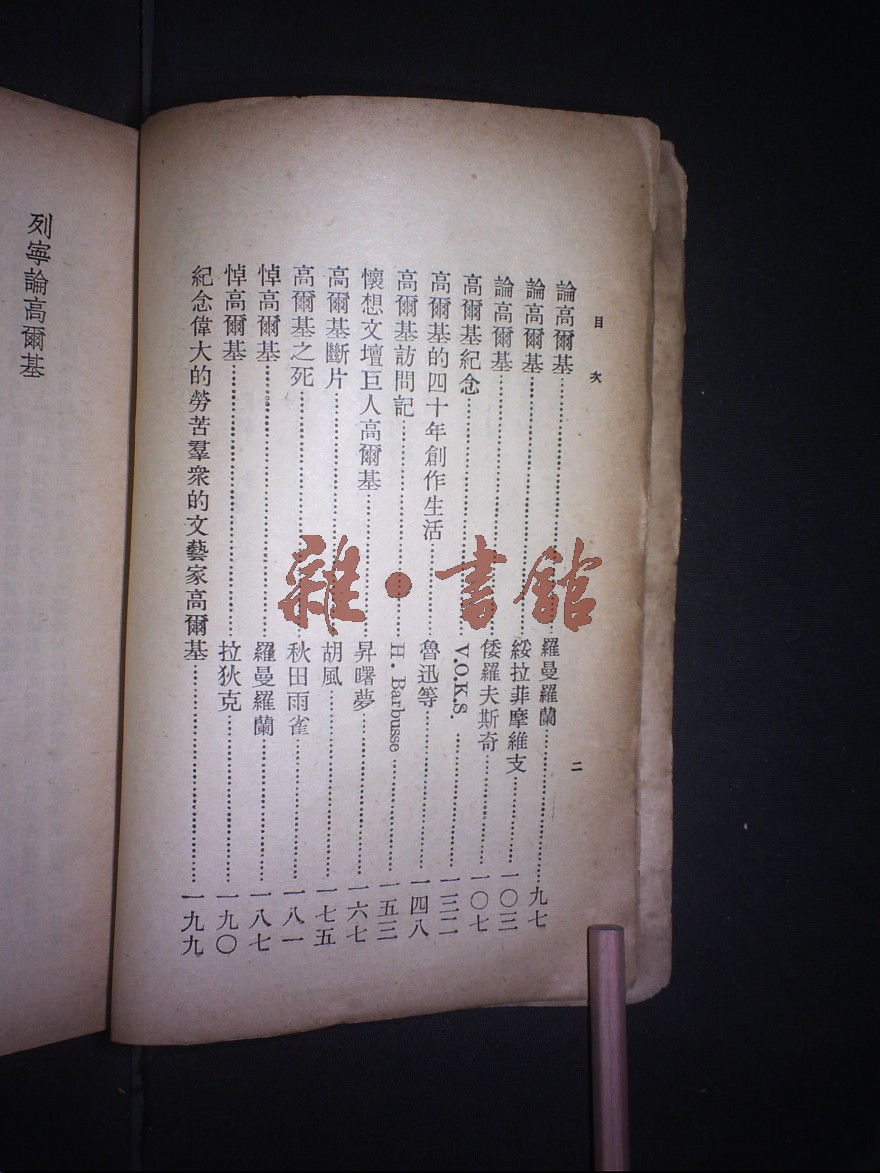 目次
二
論高爾基……羅曼羅蘭……九七
論高爾基……綏拉菲摩維支……一〇三
論高爾基……倭羅夫斯奇……一〇七
高爾基紀念……V.O.K.S.……一三二
高爾基的四十年創作生活……魯迅等……一四八
高爾基訪問記……H. Barbusse……一五三
懷想文壇巨人高爾基……昇曙夢……一六七
高爾基斷片……胡風……一七五
高爾基之死……秋田雨雀……一八一
悼高爾基……羅曼羅蘭……一八七
悼高爾基……拉狄克……一九〇
紀念偉大的勞苦羣衆的文藝家高爾基……一九九
列寧論高爾基
雜·書館